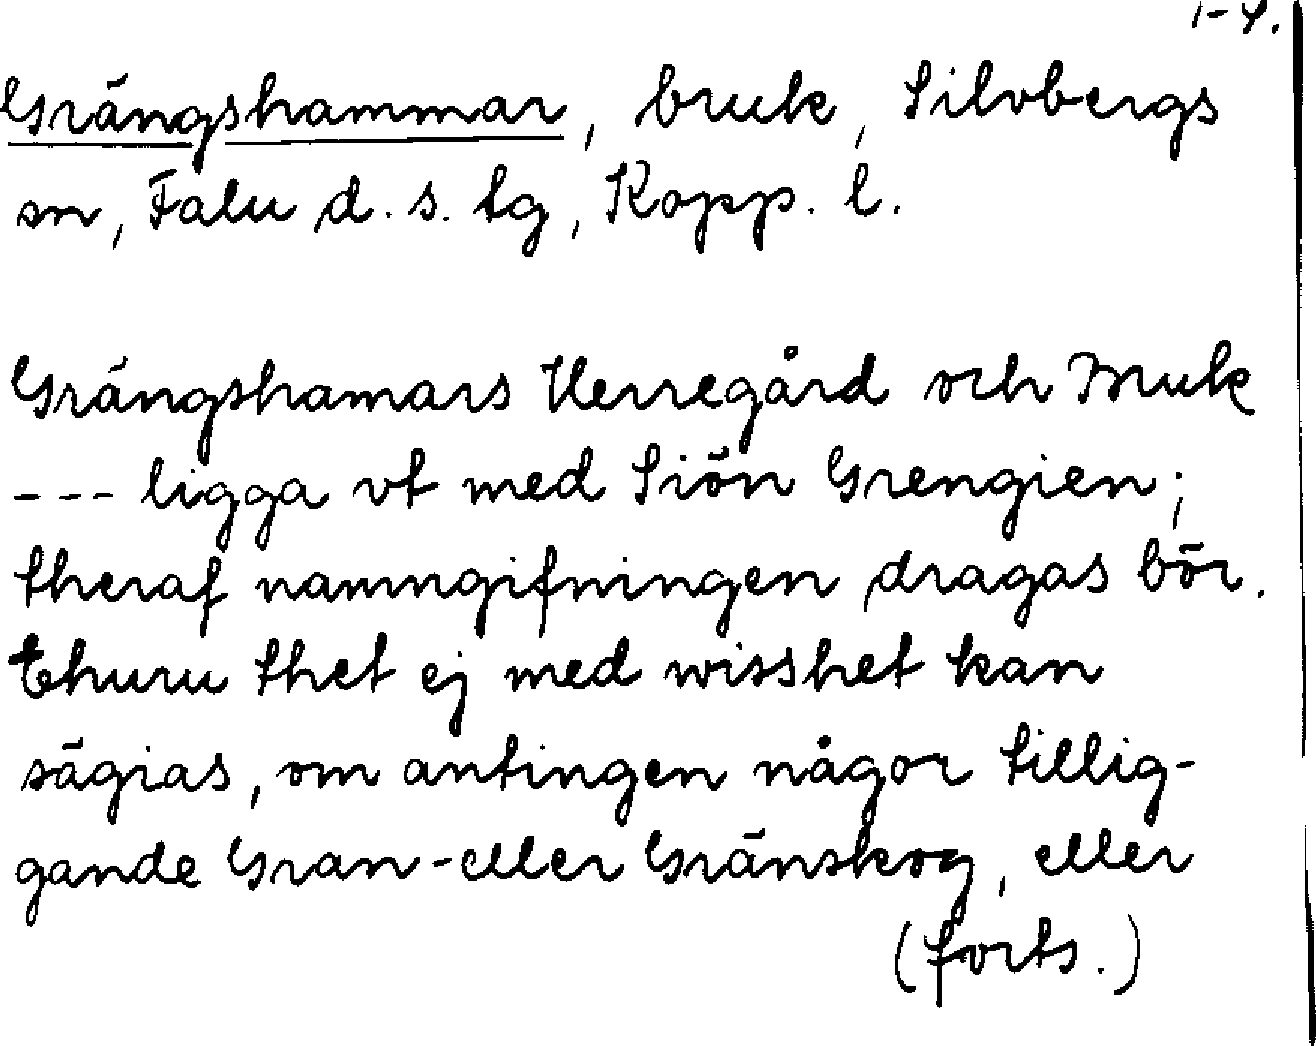 1-4.
Grängshammar, bruk, Silvbergs
sn, Falu d. s. tg, Kopp. l.
Grängshamars Herregård och Bruk
--- ligga vt med Siön Grengien;
theraf namngifningen dragas bör.
Ehuru thet ej med wisshet kan
sägias, om antingen någor tillig-
gande Gran- eller Gränskog, eller
(forts.)